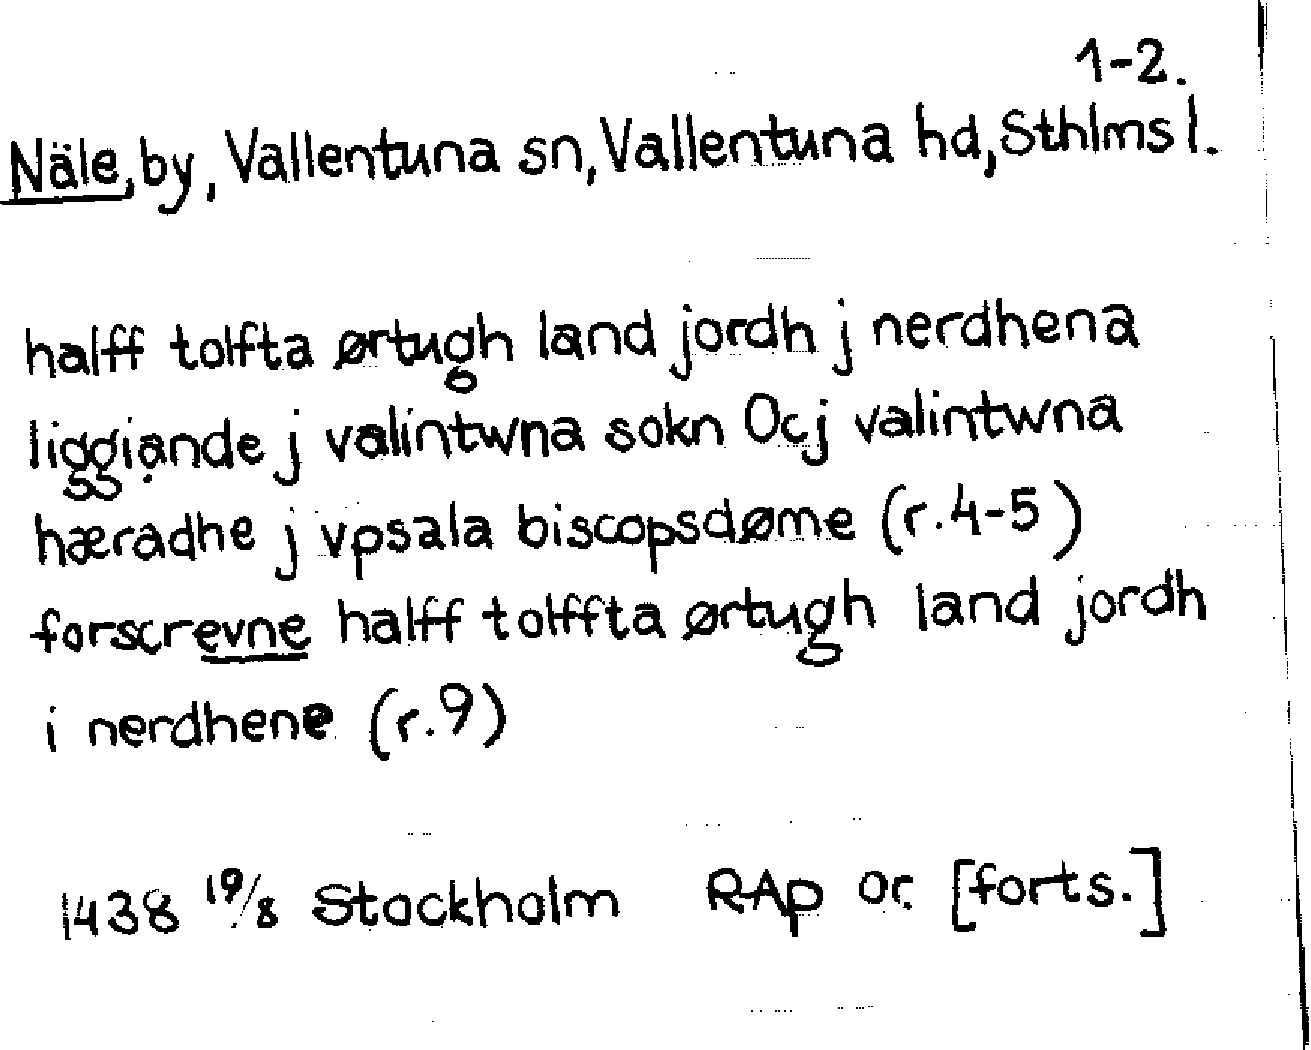 1-2.
Näle, by, Vallentuna sn, Vallentuna hd, Sthlms l.
halff tolfta ørtugh land jordh j nerdhena
liggiande j valintwna sokn Oc j valintwna
hæradhe j vpsala biscopsdøme (r.4-5)
forscrevne halff tolffta ørtugh land jordh
i nerdhene (r.9)
1438 19/8 Stockholm RAp or. [forts.]